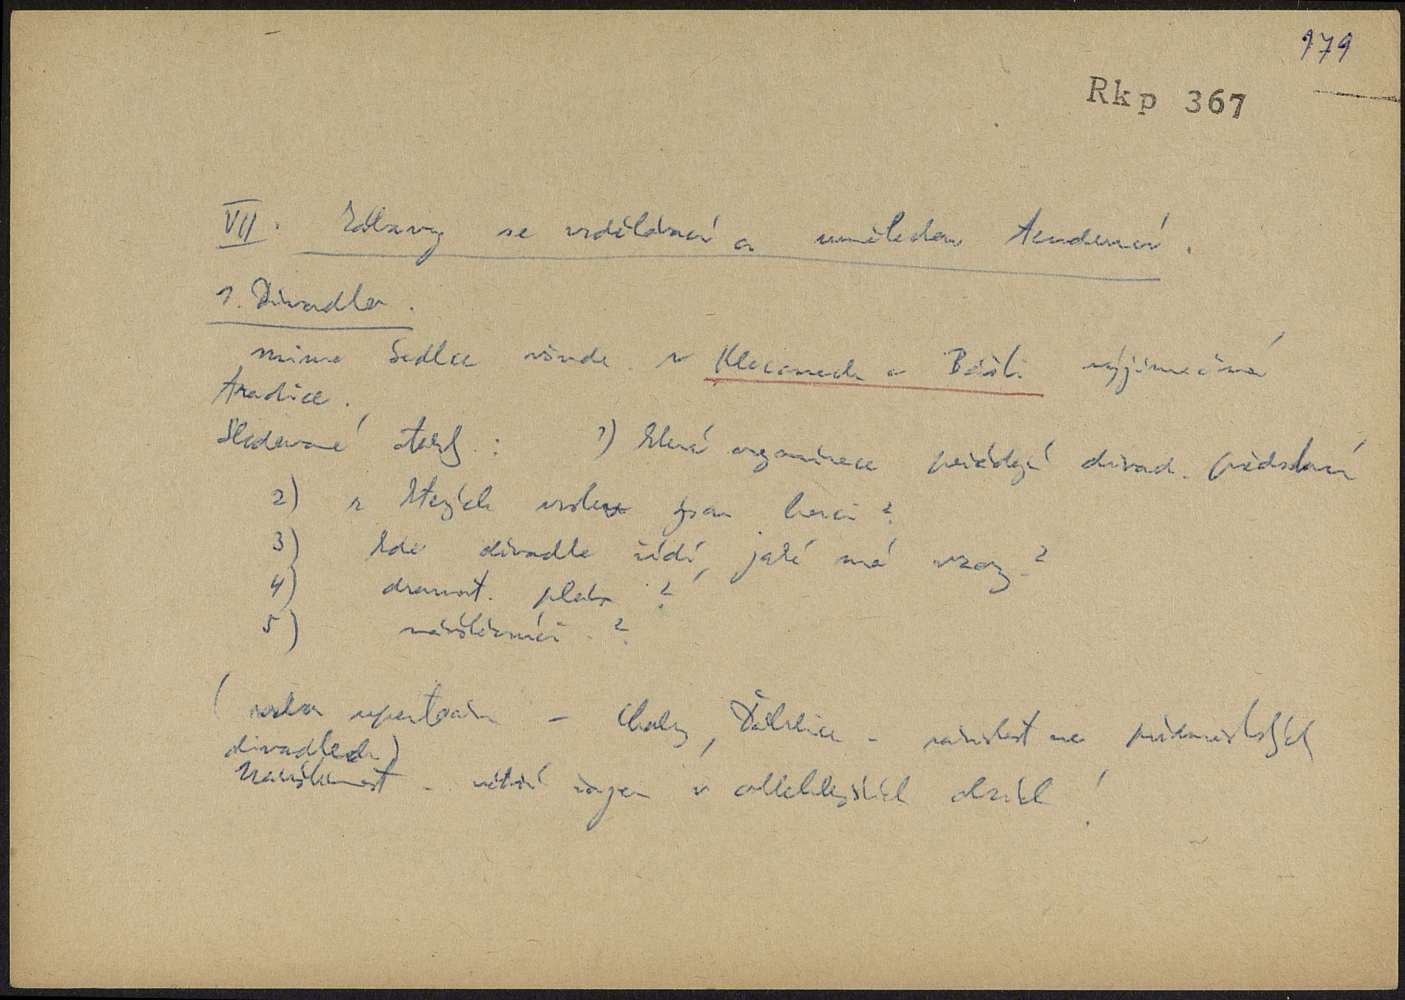 179
Rkp 367
VII. Zábavy se vzdělávací a uměleckou tendencí.
1. Divadlo.
mimo Sedlce všude v Klecanech a Bášti výjimečná
tradice.
Sledované otázky: 1) které organizace pořádají divad. představení
2) z kterých vrstev jsou herci?
3) kdo divadlo řídí, jaké má vzory?
4) dramat. plán?
5) návštěvníci?
(volba repertoáru – Chaby, Ďáblice – závislost na předměstských
divadlech)
Návštěvnost – větší zájem v odlehlejších obcích!